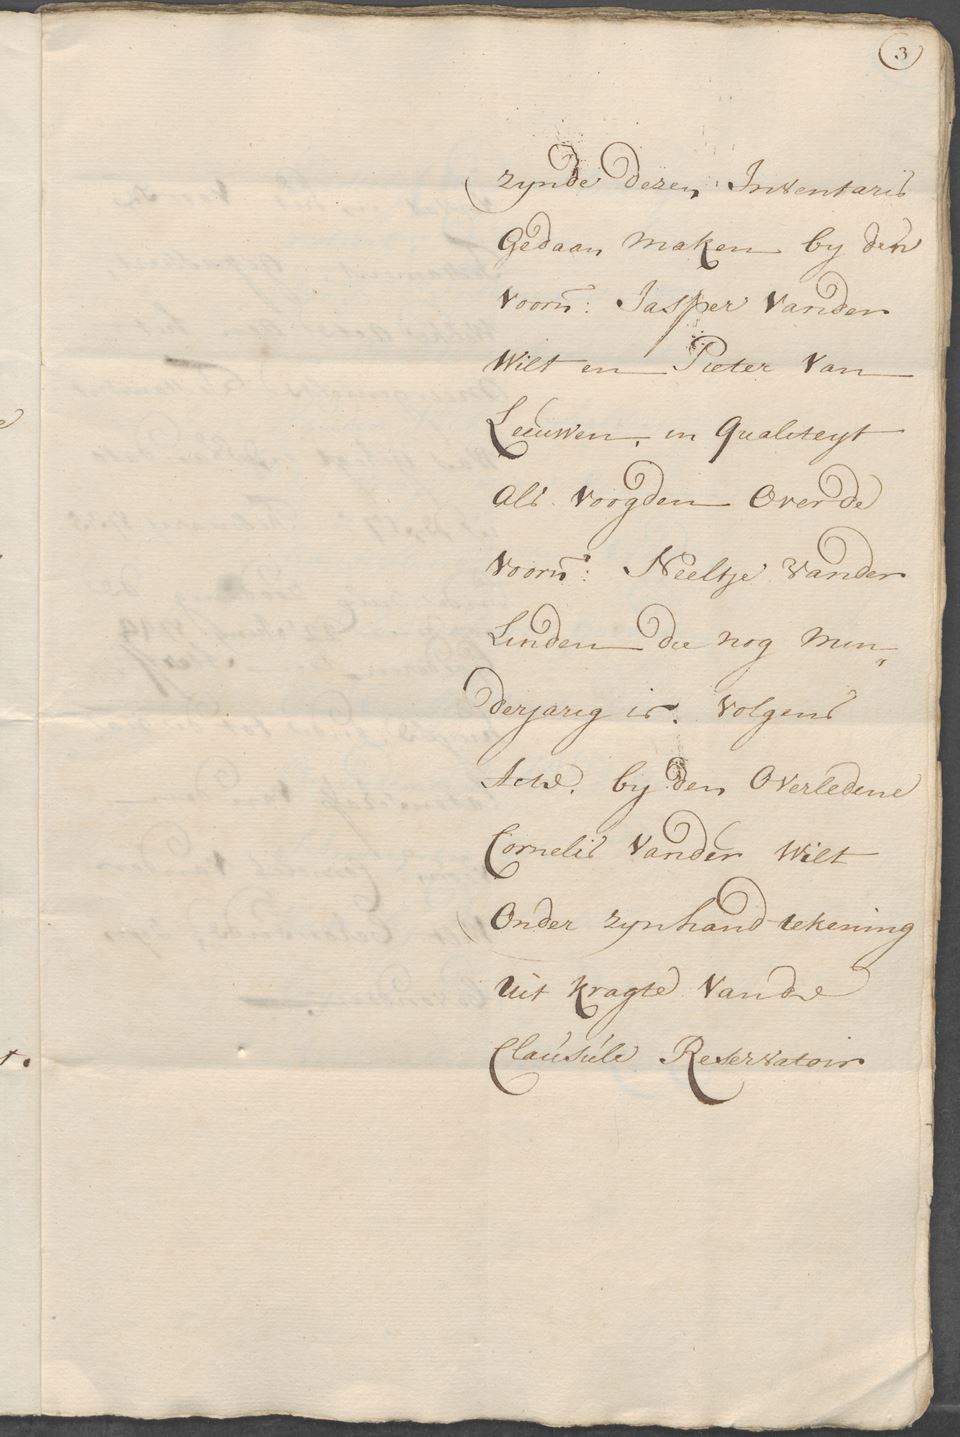 3
zynde dezen Inventaris
Gedaan maken by den
voorn: Jasper vander
Wilt en Pieter van
Leeuwen, in qualiteyt
als voogden over de
voorn: Neeltje vander
Linden die nog min„
derjarig is. volgens
Acte. by den Overledene
Cornelis vander Wilt
Onder zyn handtekening
uit kragte van de
Clausule Reservatoir